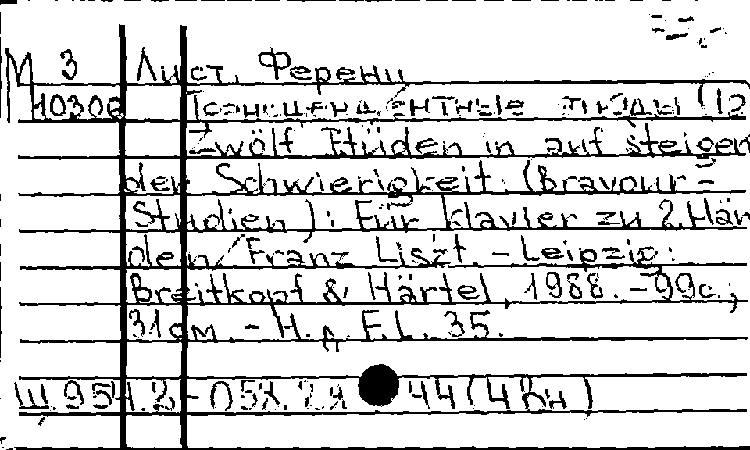 М 3 Лист, Ференц
10306 Трансцендентные этюды (12
Zwölf Etüden in auf steigen
der Schwierigkeit. (Bravour-
Studien): Für klavier zu 2.Hän
den/Franz Liszt. - Leipzig:
Breitkopf & Härtel, 1988. - 99с.;
31см. - Н. д F.L. 35.
Щ 954.2-05Х.2я 44 (4Вн)